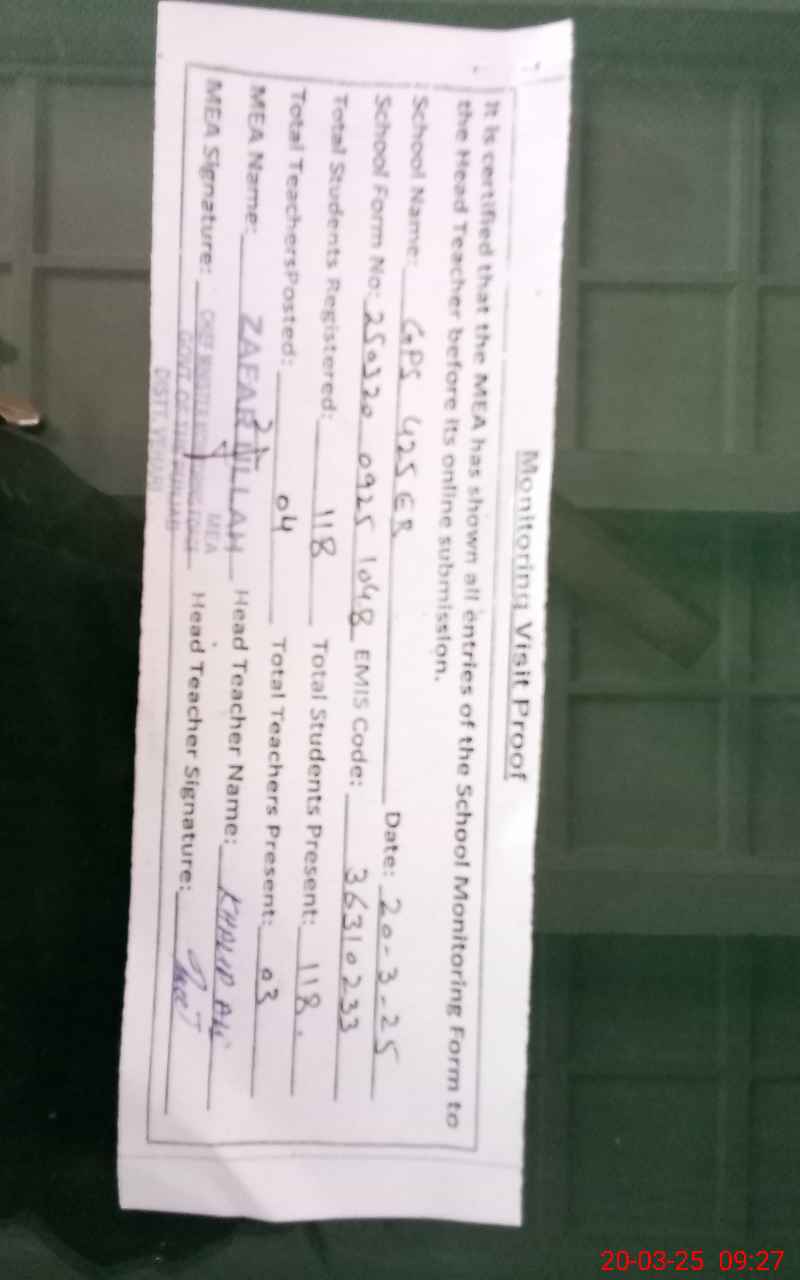 Monitoring Visit Proof
It is certified that the MEA has shown all entries of the School Monitoring Form to
the Head Teacher before its online submission.
School Name: GPS 425 EB Date: 20-3-25
School Form No: 250320 0925 1048 EMIS Code: 36310233
Total Students Registered: 118 Total Students Present: 118.
Total TeachersPosted: 04 Total Teachers Present: 03
MEA Name: ZAFAR ULLAH Head Teacher Name: KHALID ALI
MEA Signature: Head Teacher Signature:
MEA
GOVT. OF THE PUNJAB
DISTT. VEHARI
20-03-25 09:27